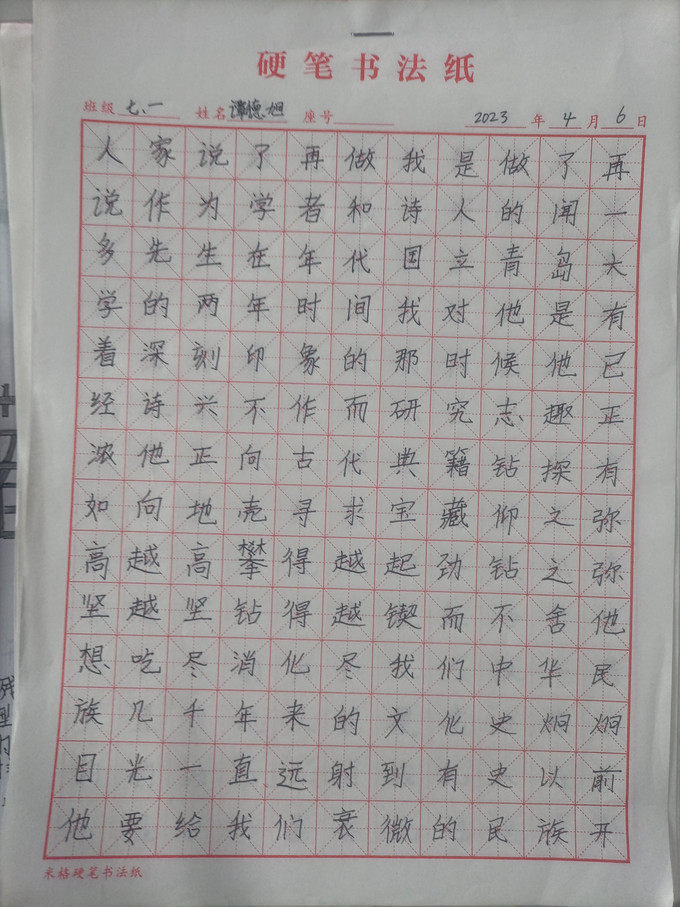 硬笔书法纸
班级 七、一 姓名 谭德旭 座号 2023 年 4 月 6 日
人家说了再做我是做了再
说作为学者和诗人的闻一
多先生在年代国立青岛大
学的两年时间我对他是有
着深刻印象的那时候他已
经诗兴不作而研究志趣正
浓他正向古代典籍钻探有
如向地壳寻求宝藏仰之弥
高越高攀得越起劲钻之弥
坚越坚钻得越锲而不舍他
想吃尽消化尽我们中华民
族几千年来的文化史炯炯
目光一直远射到有史以前
他要给我们衰微的民族开
米格硬笔书法纸